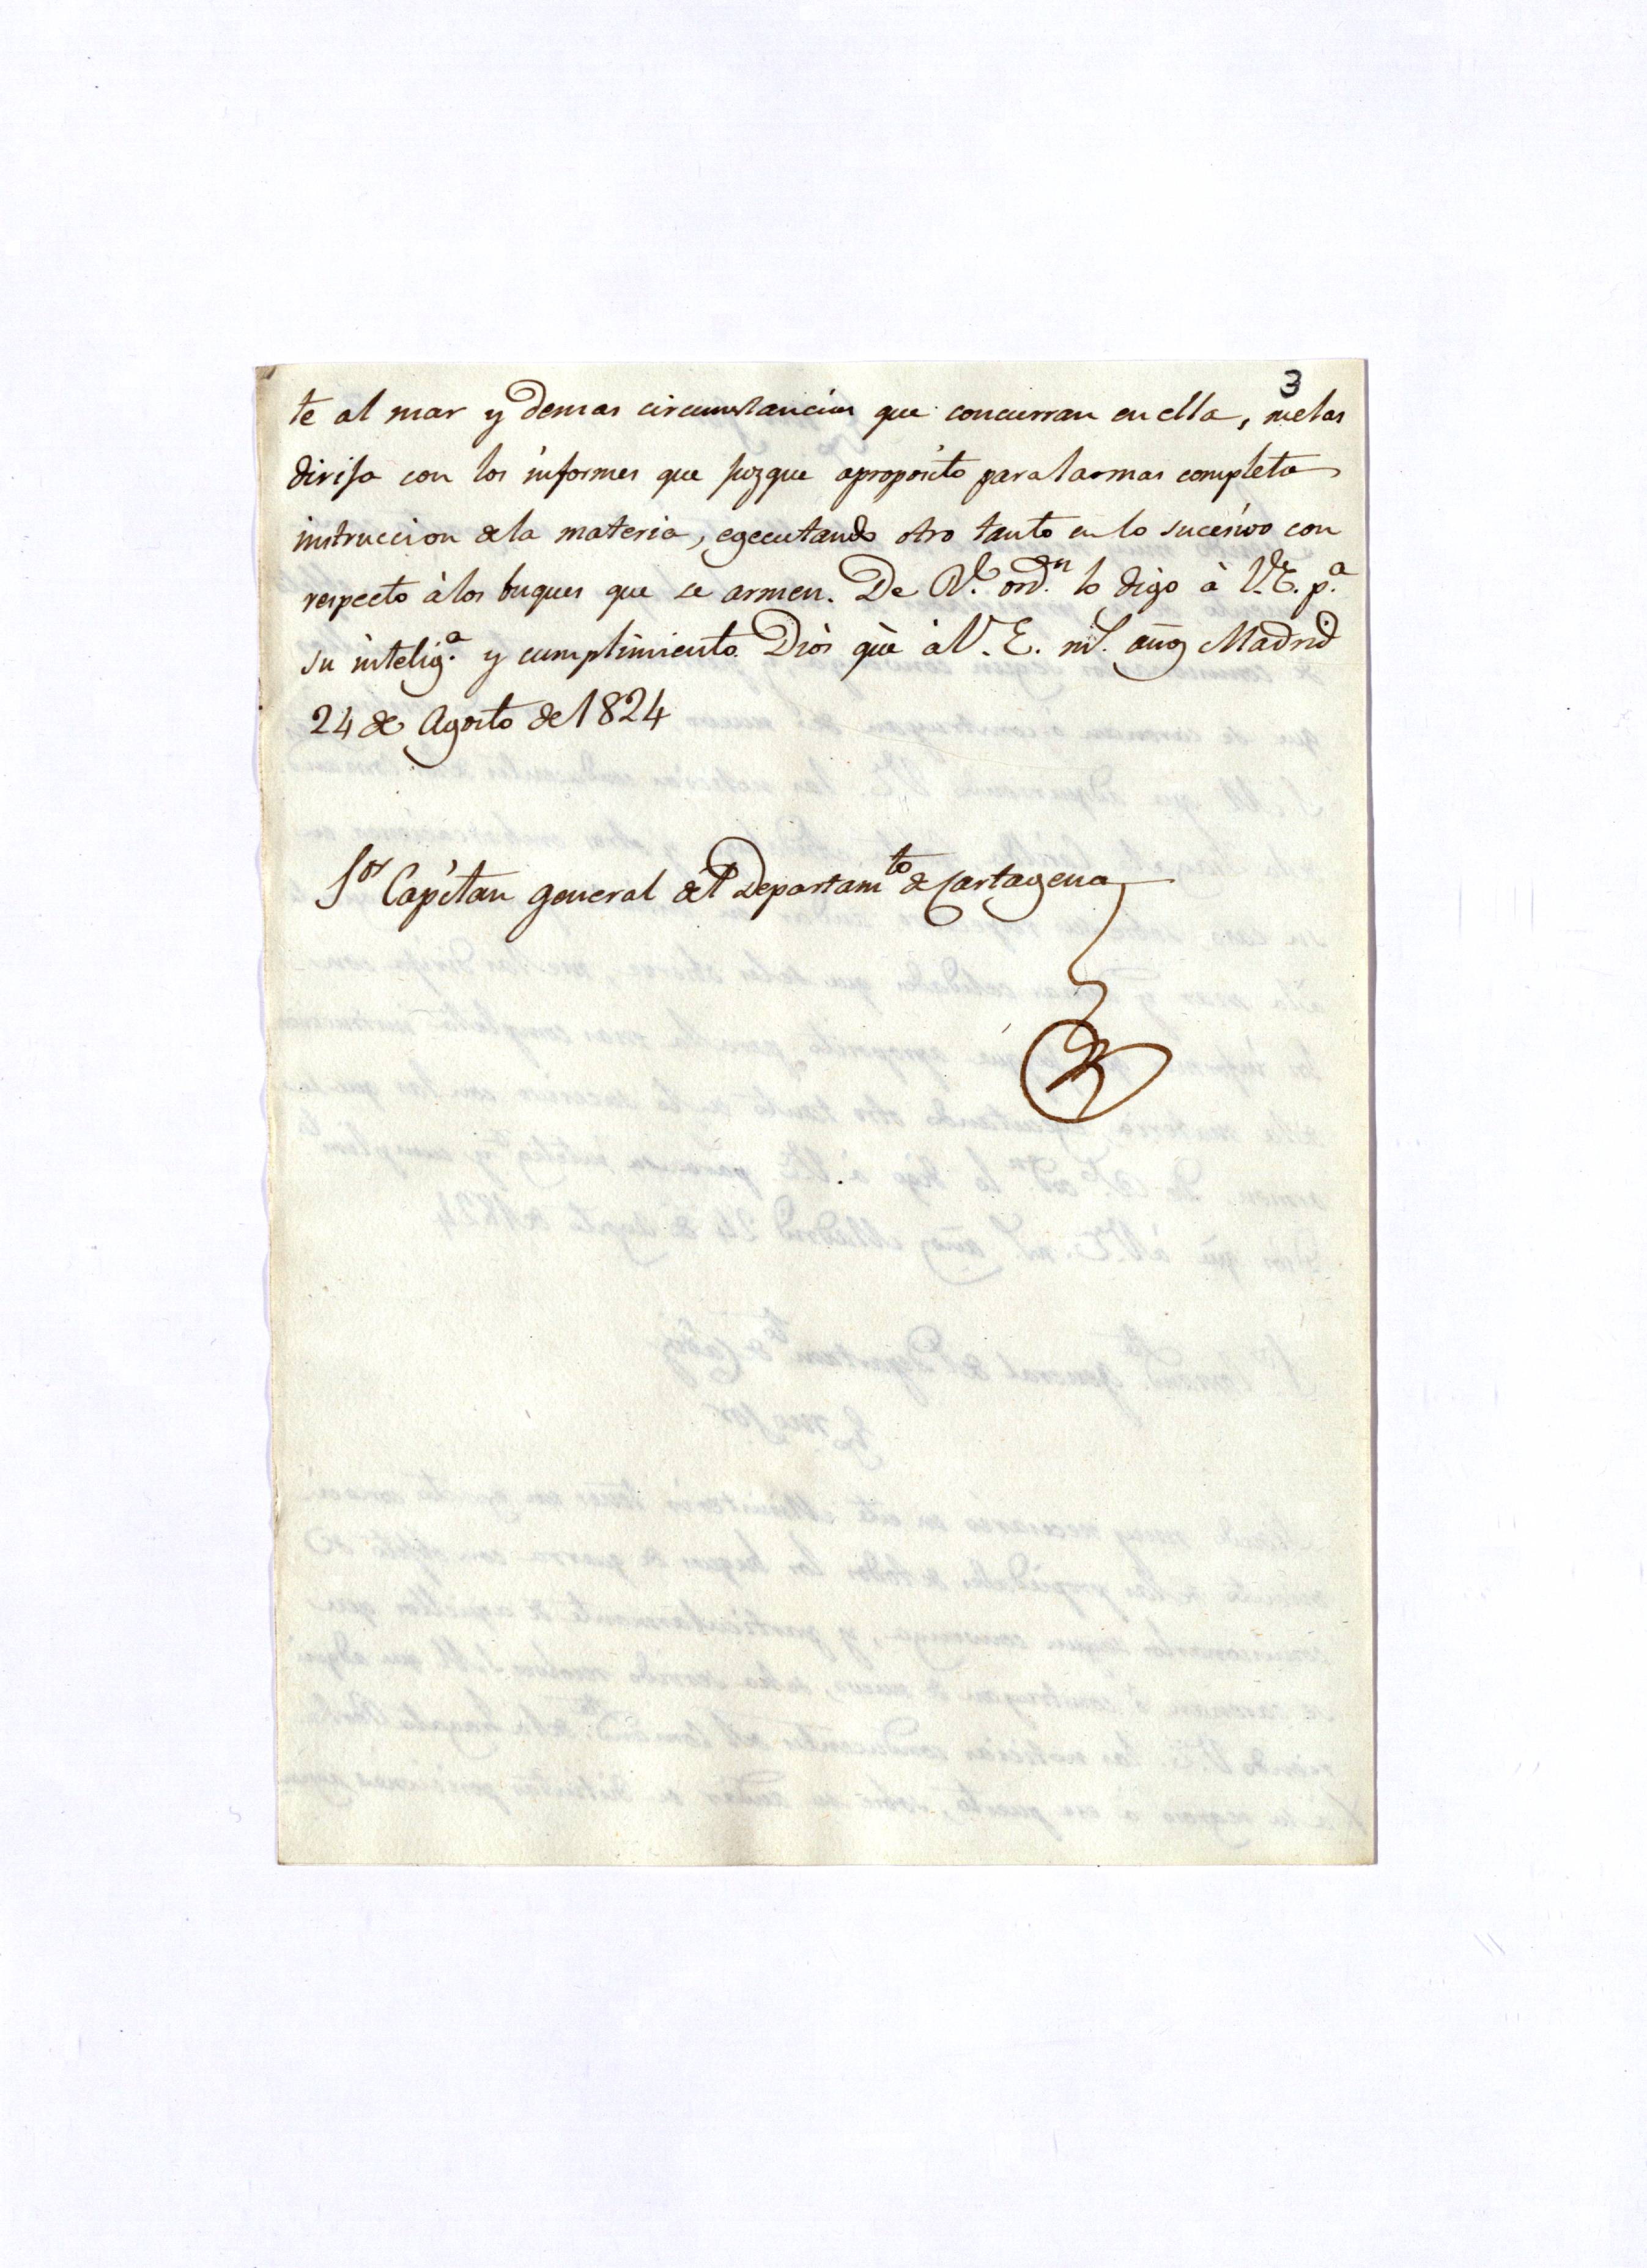 3
te al mar y demas circunstancias que concurran en ella, me las
dirija con los informes que juzgue aproposito para la mas completa
instruccion de la materia, egecutando otro tanto en lo sucesivo con
respecto à los buques que se armen. De Rl. ordn. lo digo à V.E. pa.
su inteliga. y cumplimiento. Dios gûe à V.E. ms. añs Madrid
24 de Agosto de 1824
Sor Capitan general del Departamto de Cartagena